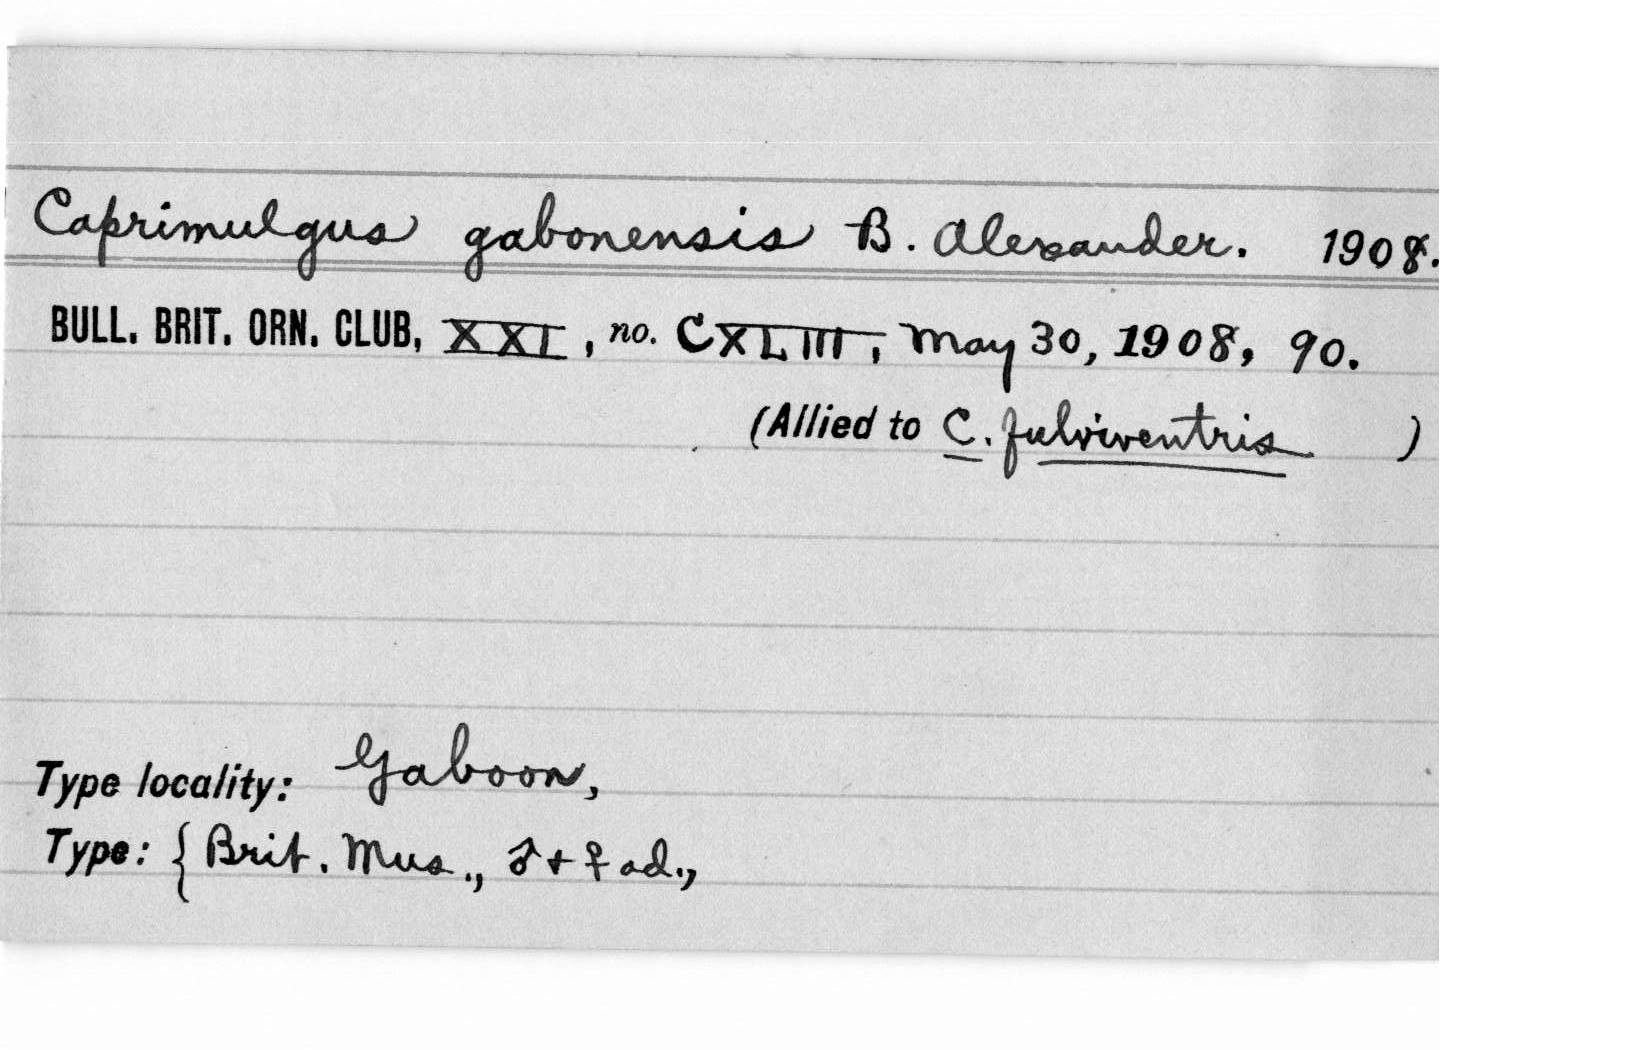 Caprimulgus gabonensis B. Alexander. 1908.
BULL. BRIT. ORN. CLUB, XXI, no. CXLIII, May 30, 1908, 90.
(Allied to C. fulviventris )
Type locality: Gaboon,
Type: { Brit. Mus., ♂ + ♀ ad.,